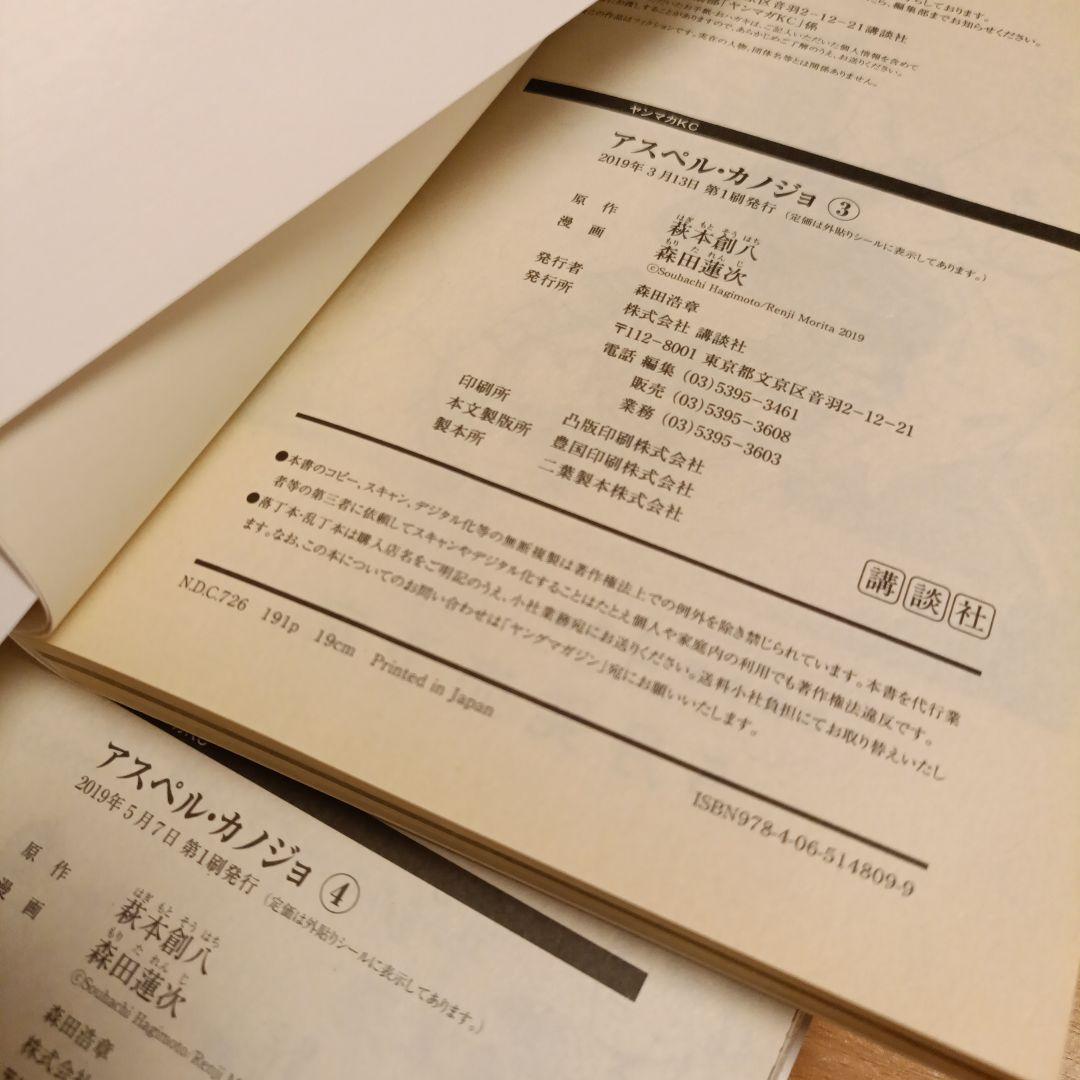 しております。
たら、編集部までお知らせください。
区音羽2-12-21講談社
部「ヤンマガKC」係
いただいたお手紙・おハガキは、ご記入いただいた個人情報を含めて
お渡しすることがありますので、あらかじめご了解のうえ、お送りください。
この作品はフィクションです。実在の人物、団体名等とは関係ありません。
ヤンマガKC
アスペル・カノジョ ③
2019年3月13日 第1刷発行 (定価は外貼りシールに表示してあります。)
原作 萩本創八
はぎ もと そう はち
漫画 森田蓮次
もり た れん じ
©Souhachi Hagimoto/Renji Morita 2019
発行者 森田浩章
発行所 株式会社 講談社
〒112-8001 東京都文京区音羽2-12-21
電話 編集 (03)5395-3461
販売 (03)5395-3608
業務 (03)5395-3603
印刷所 凸版印刷株式会社
本文製版所 豊国印刷株式会社
製本所 二葉製本株式会社
講談社
●本書のコピー、スキャン、デジタル化等の無断複製は著作権法上での例外を除き禁じられています。本書を代行業
者等の第三者に依頼してスキャンやデジタル化することはたとえ個人や家庭内の利用でも著作権法違反です。
●落丁本・乱丁本は購入店名をご明記のうえ、小社業務宛にお送りください。送料小社負担にてお取り替えいたし
ます。なお、この本についてのお問い合わせは「ヤングマガジン」宛にお願いいたします。
N.D.C.726 191p 19cm Printed in Japan
ISBN978-4-06-514809-9
アスペル・カノジョ ④
2019年5月7日 第1刷発行 (定価は外貼りシールに表示してあります。)
原作 萩本創八
はぎ もと そう はち
漫画 森田蓮次
もり た れん じ
©Souhachi Hagimoto/Renji M
森田浩章
株式会社